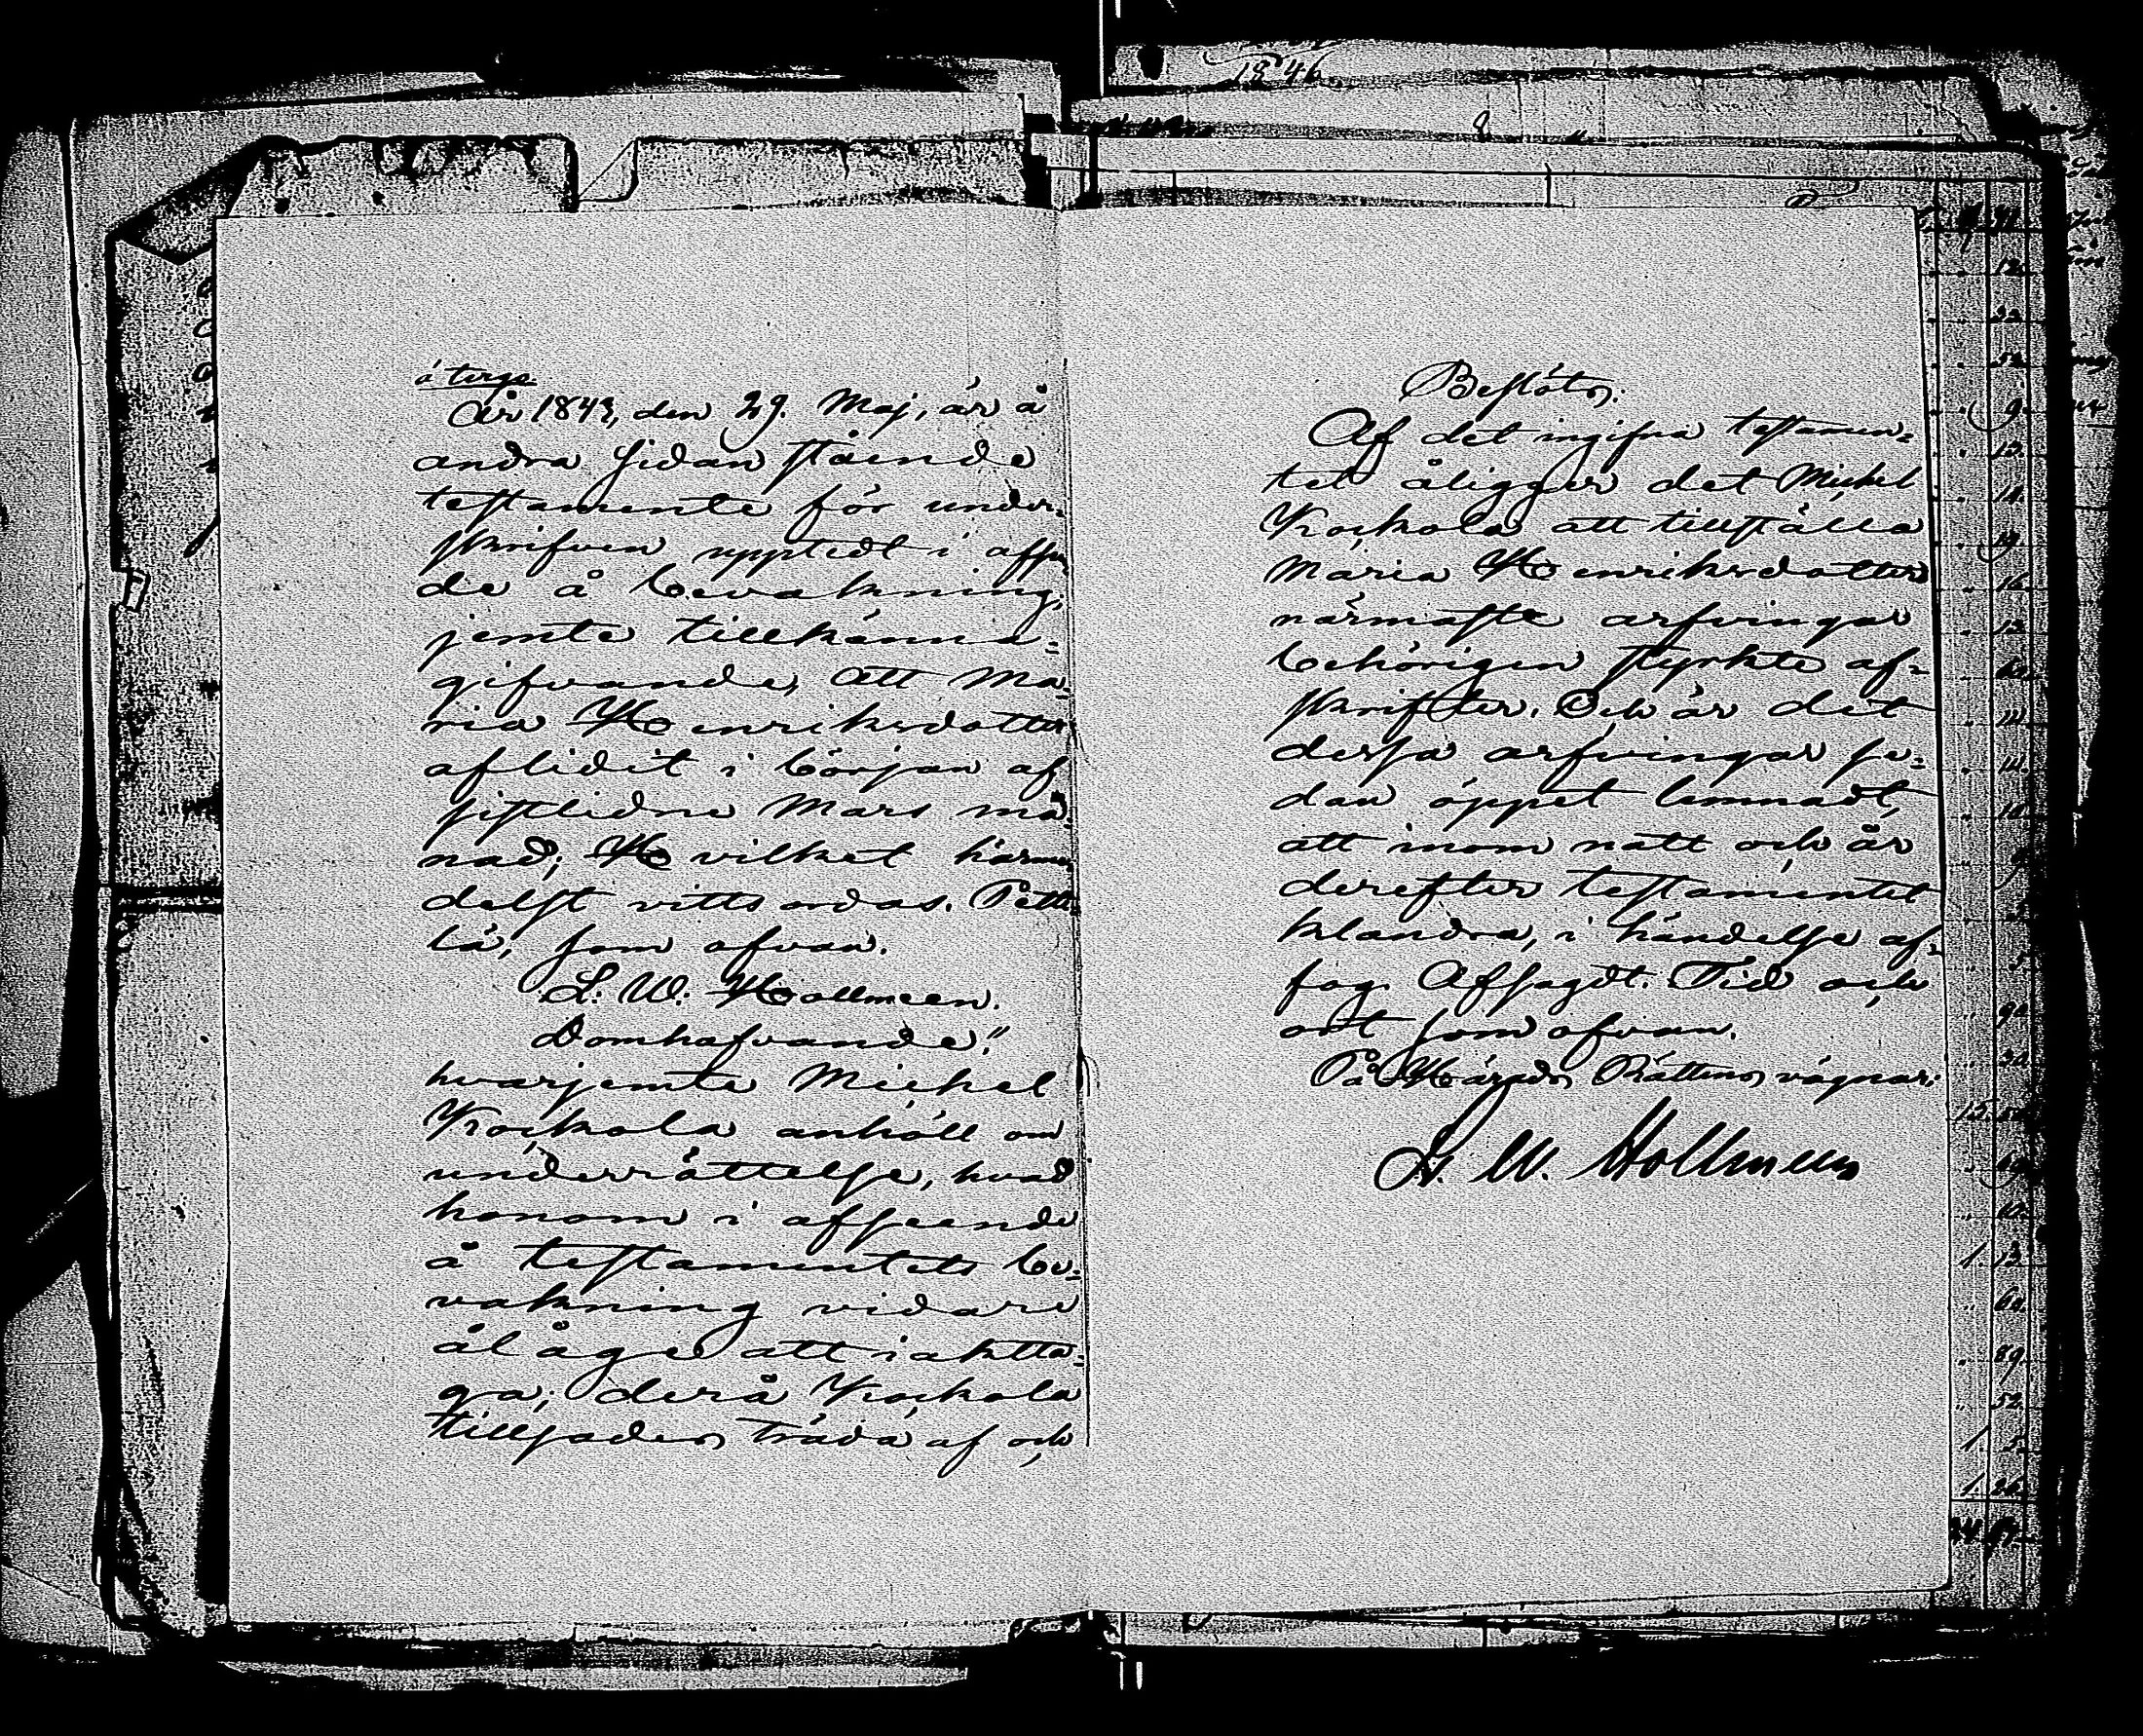 å tergo
År 1843, den 29. Maj, är å
andra sidan stående
testamente för under-
skrifven upptedt i afseen
de å bevakning,
jemte tillkänna-
gifvande, att Ma-
ria Henriksdotter
aflidit i början af
sistlidne Mars må-
nad; Hvilket härme-
delst vittsordas. Pätti-
lä, som ofvan.
L. W. Hollmeen.
Domhafvande."
hvarjemte Michel
Kockola anhöll om
underrättelse, hvad
honom i afseende
å testamentets be-
vakning vidare
ålåge att iaktta-
ga; derå Kockola
tillsades träda af och
Beslöts:
Af det ingifna testamen-
tet åligger det Michel
Kockola att tillställa
Maria Henriksdotters
närmaste arfvingar
behörigen styrkte af-
skrifter. Och är det
dessa arfvingar se-
dan öppet lemnadt,
att inom natt och år
derefter testamentet
klandra, i händelse af
fog. Afsagdt. Tid och
ort som ofvan.
På Härads Rättens vägnar:
L. W. Hollmeen
1846.